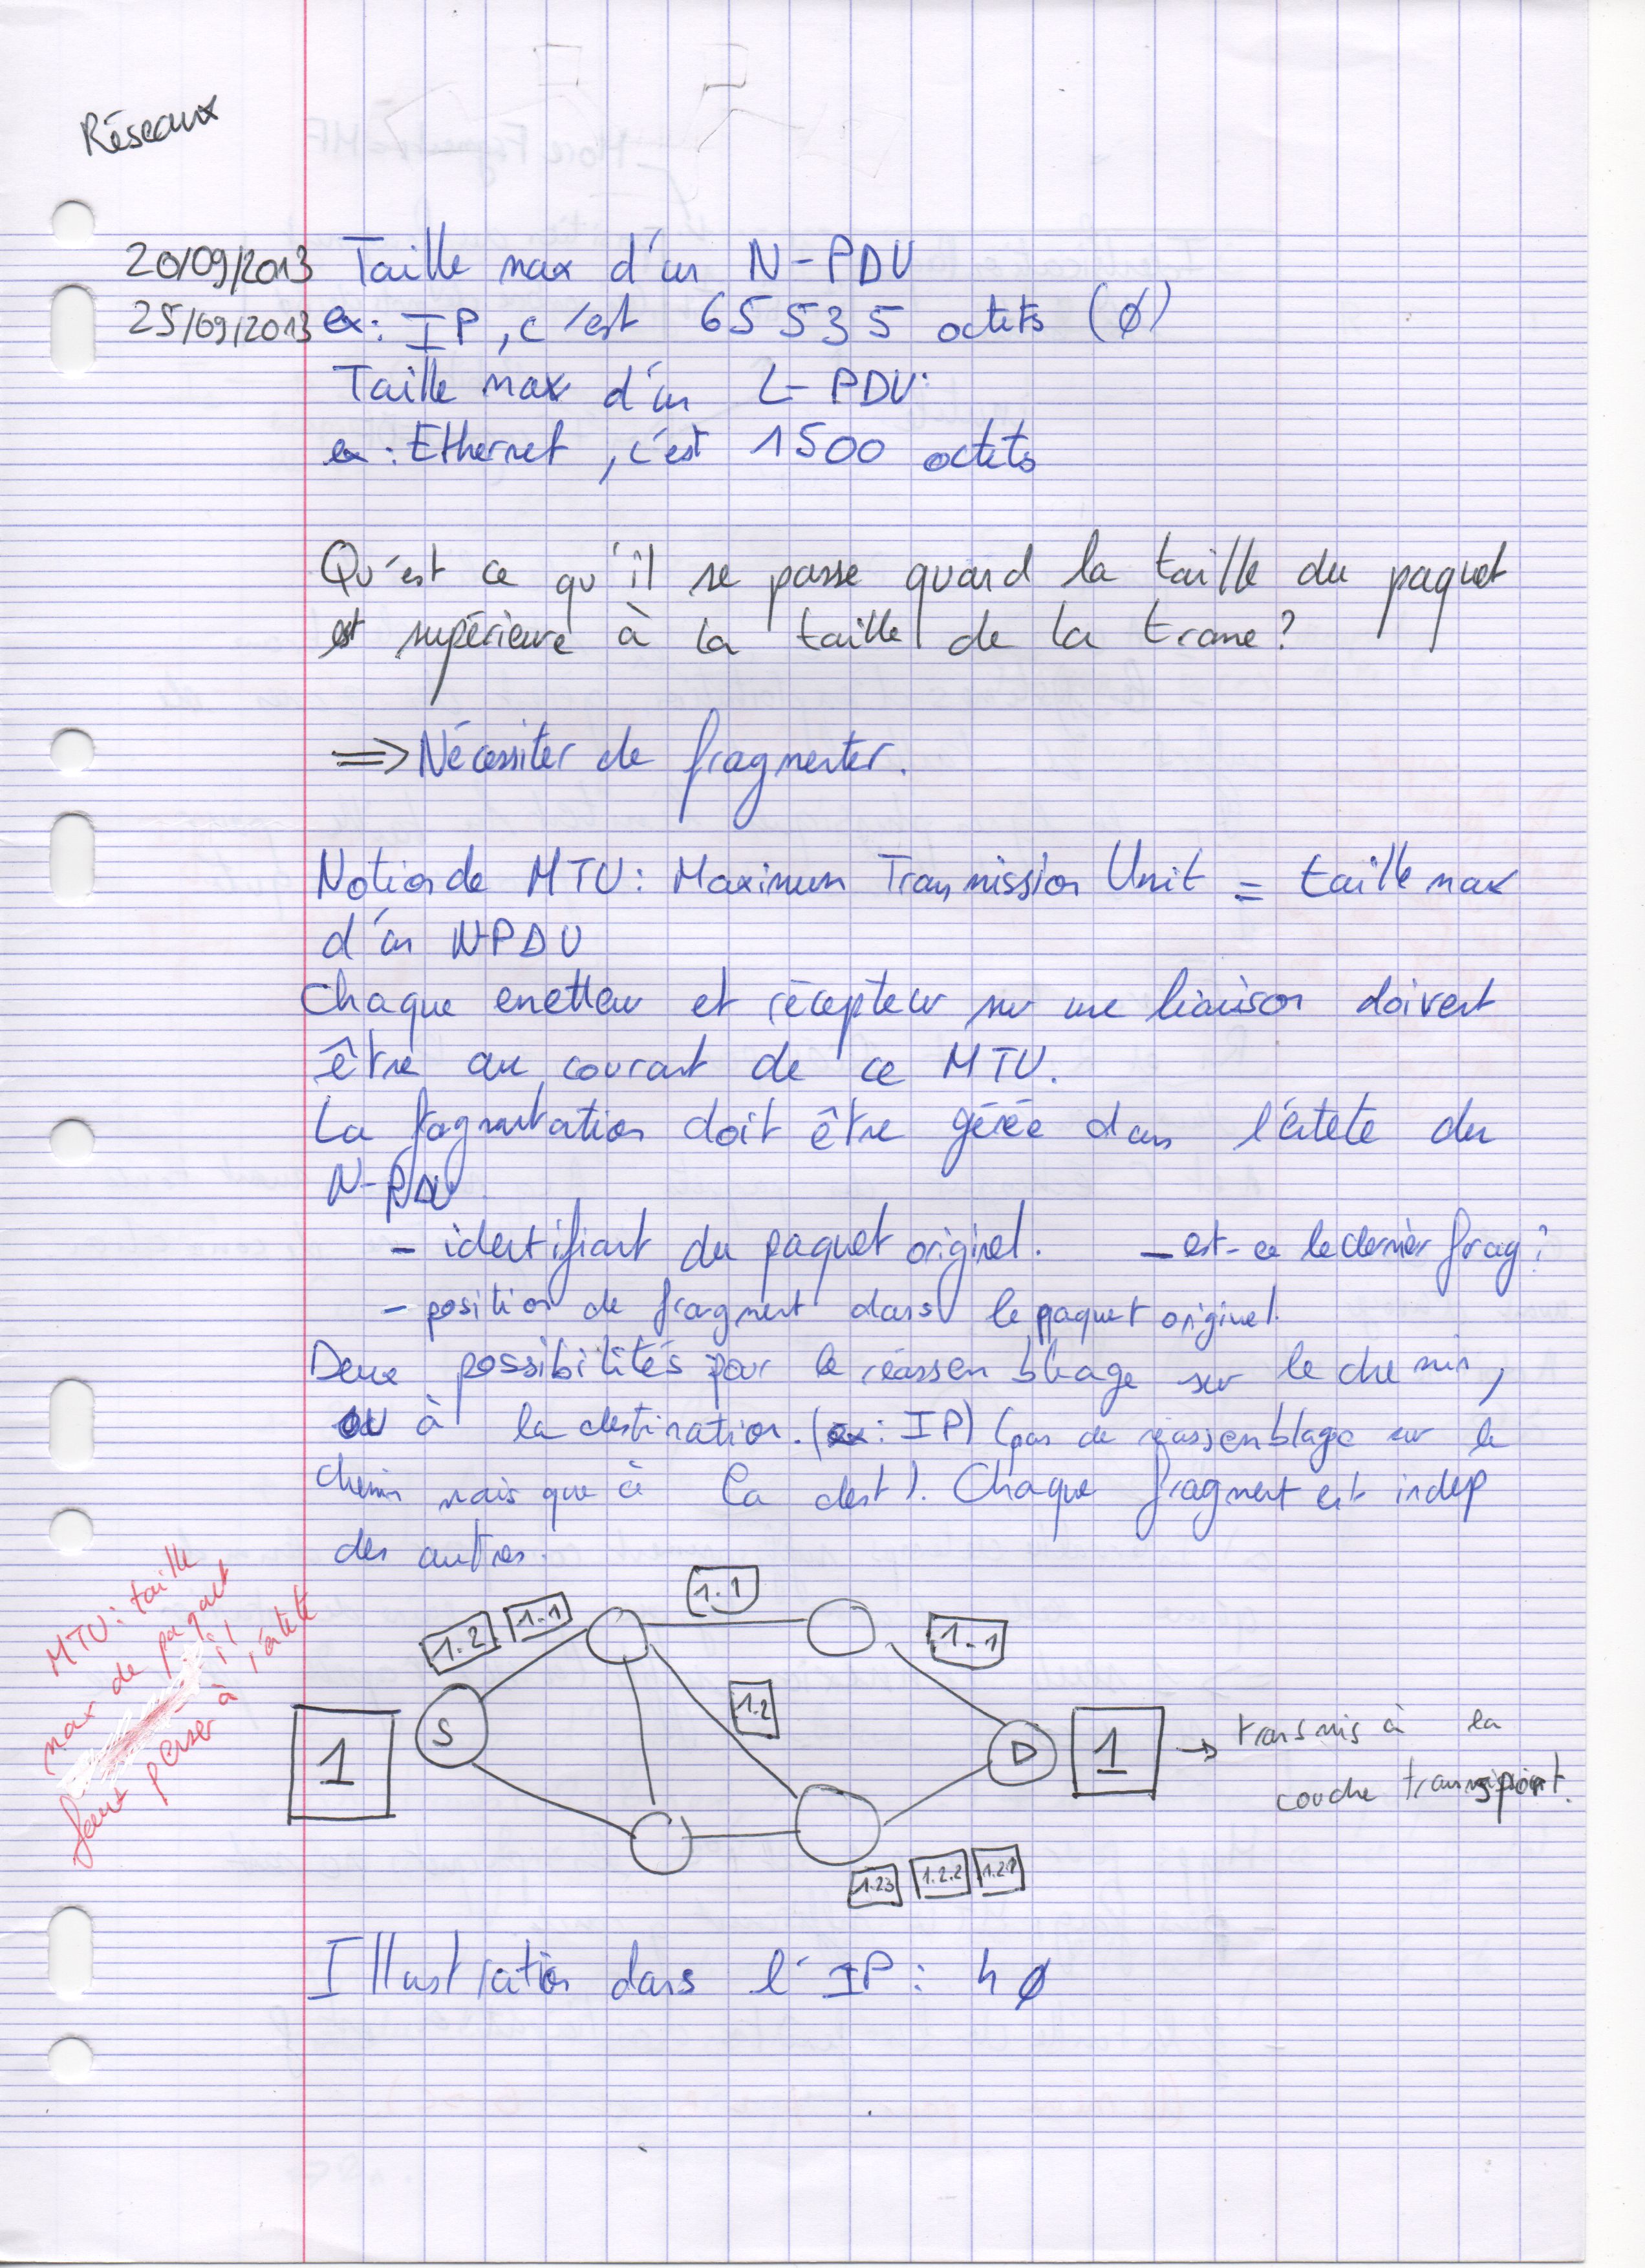 Réseaux
20/09/2013 Taille max d'un N-PDU
25/09/2013 ex: IP, c'est 65535 octets (Ø)
Taille max d'un L-PDU:
ex: Ethernet, c'est 1500 octets
Qu'est ce qu'il se passe quand la taille du paquet
est supérieure à la taille de la trame?
=> Nécessiter de fragmenter.
Notion de MTU: Maximum Transmission Unit = taille max
d'un N-PDU
Chaque emetteur et récepteur sur une liaison doivent
être au courant de ce MTU.
La fragmentation doit être gérée dans l'entete du
N-PDU
- identifiant du paquet originel. - est-ce le dernier frag?
- position de fragment dans le paquet originel.
Deux possibilités pour le réassemblage sur le chemin,
ou à la destination. (ex: IP) (pas de réassemblage sur le
chemin mais que à la dest). Chaque fragment est indep
des autres.
MTU: taille
max de paquet
il
faut penser à
l'entete
1.2 1.1 1.1 1.1
1.2
1 S D 1 → transmis à la
couche transport.
1.23 1.2.2 1.21
Illustration dans l'IP: 4 Ø